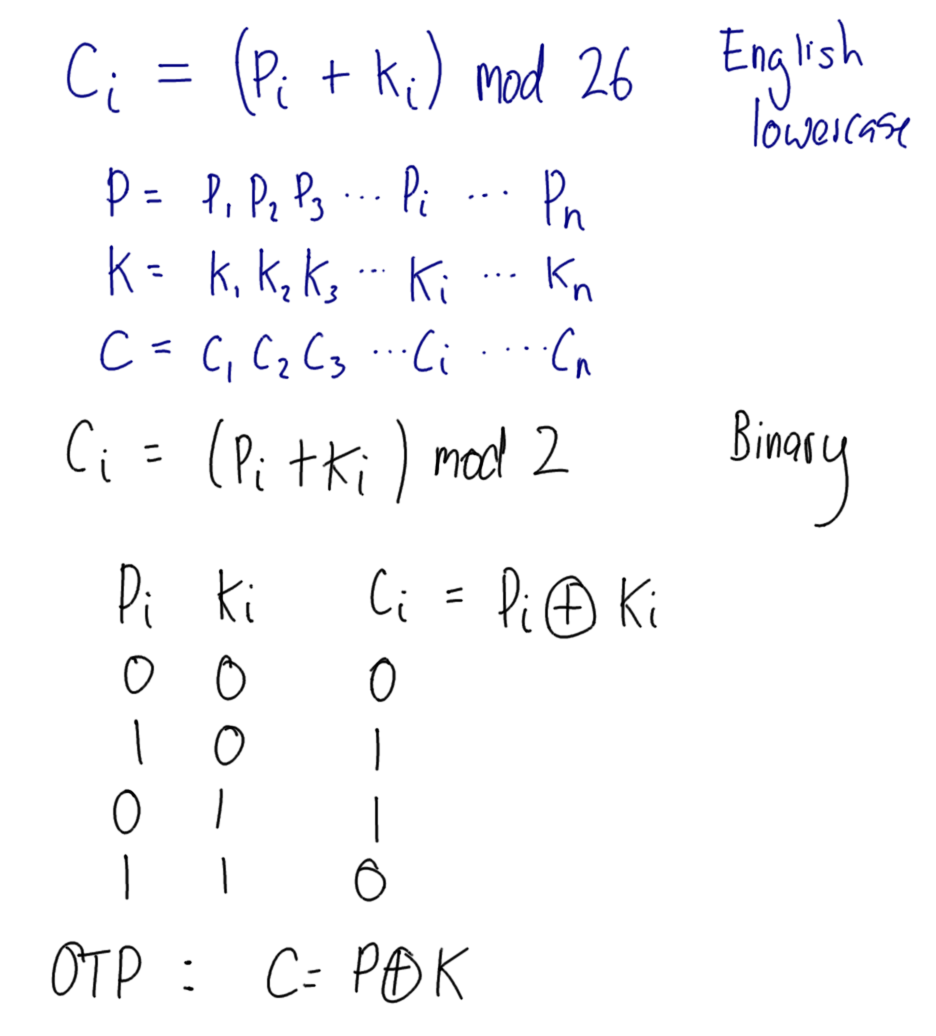 Cᵢ = (Pᵢ + Kᵢ) mod 26 English lowercase
P = P₁ P₂ P₃ ... Pᵢ ... Pₙ
K = K₁ K₂ K₃ ... Kᵢ ... Kₙ
C = C₁ C₂ C₃ ... Cᵢ ..... Cₙ
Cᵢ = (Pᵢ + Kᵢ) mod 2 Binary
Pᵢ Kᵢ Cᵢ = Pᵢ ⊕ Kᵢ
0 0 0
1 0 1
0 1 1
1 1 0
OTP : C = P⊕K